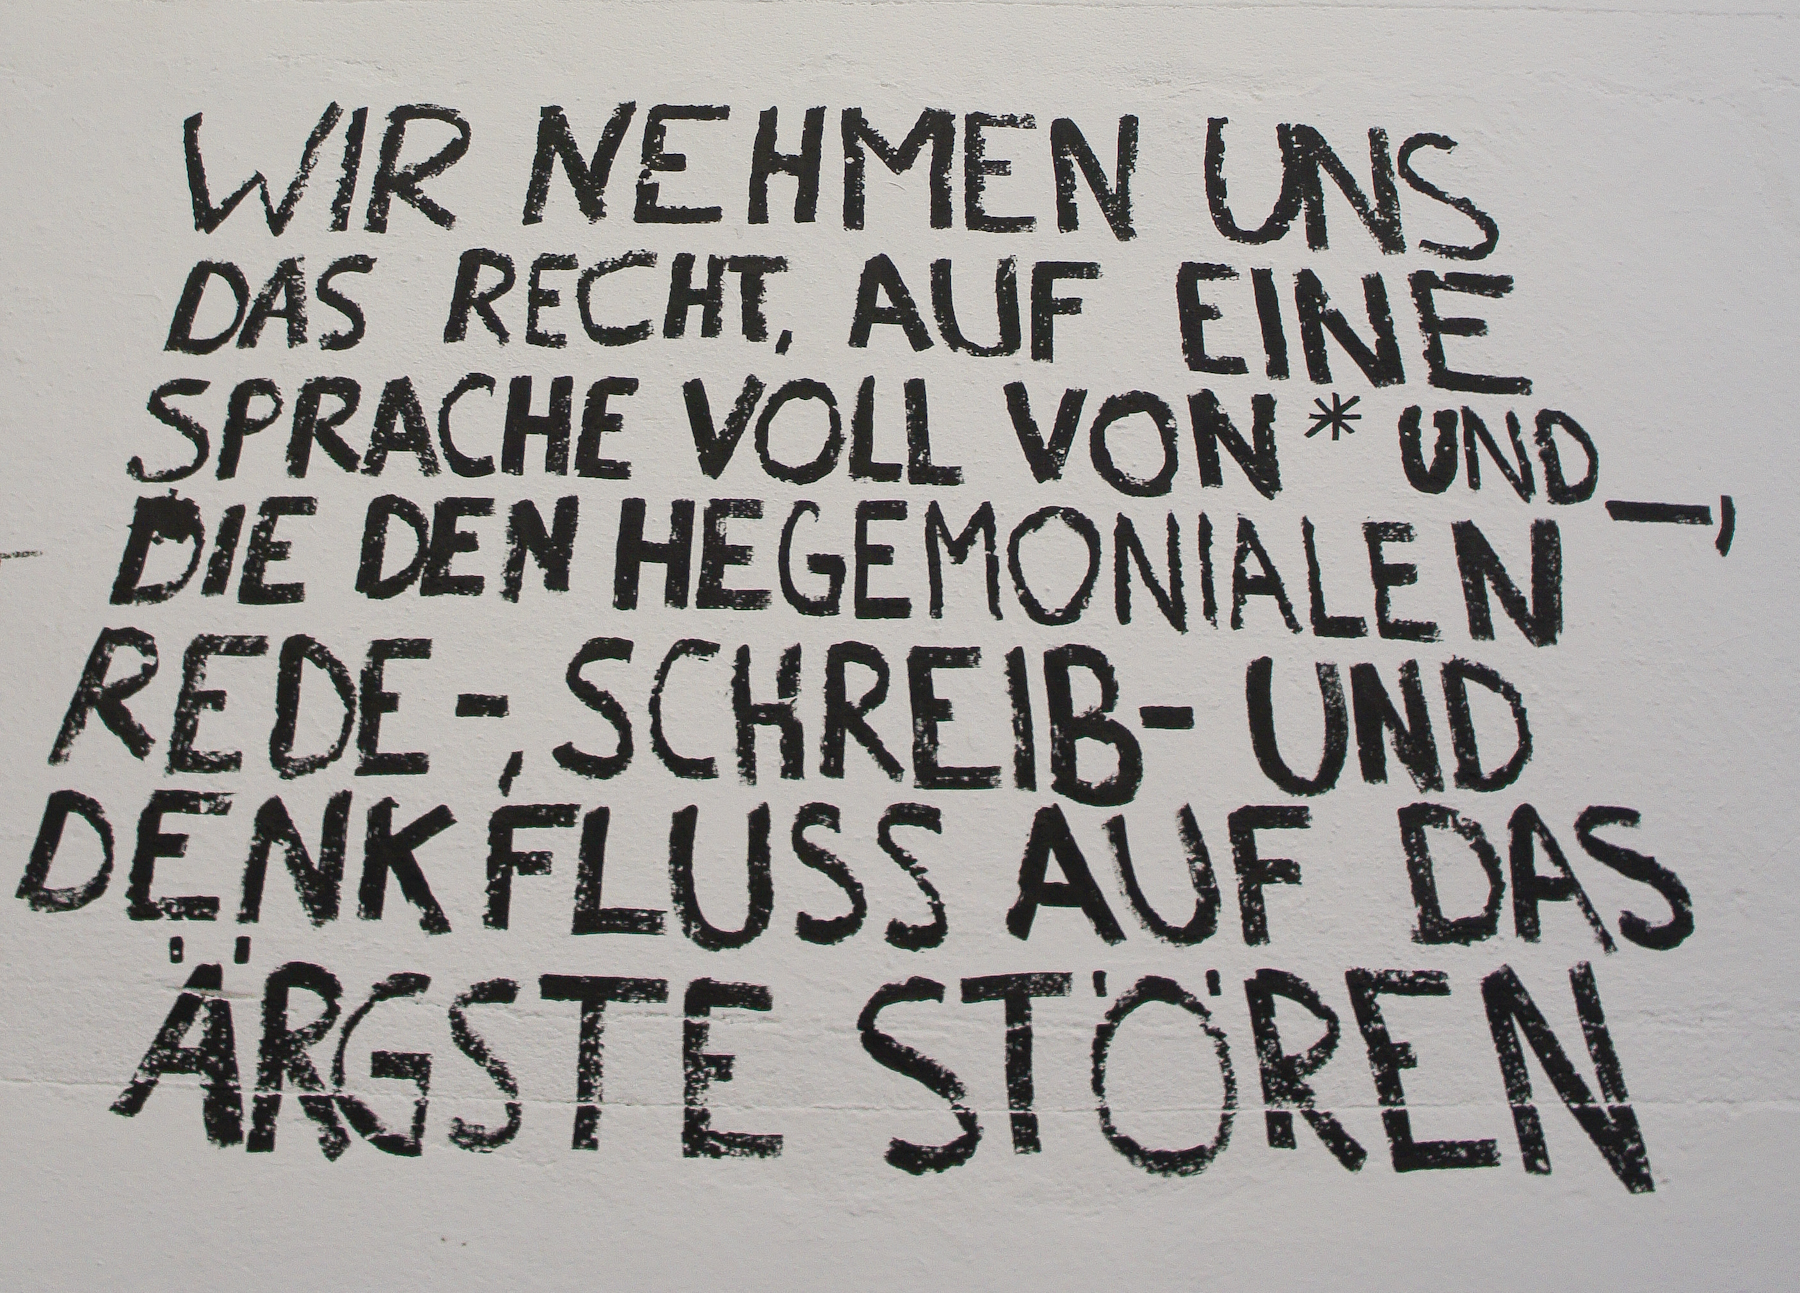 WIR NEHMEN UNS
DAS RECHT, AUF EINE
SPRACHE VOLL VON * UND _,
DIE DEN HEGEMONIALEN
REDE-, SCHREIB- UND
DENKFLUSS AUF DAS
ÄRGSTE STÖREN